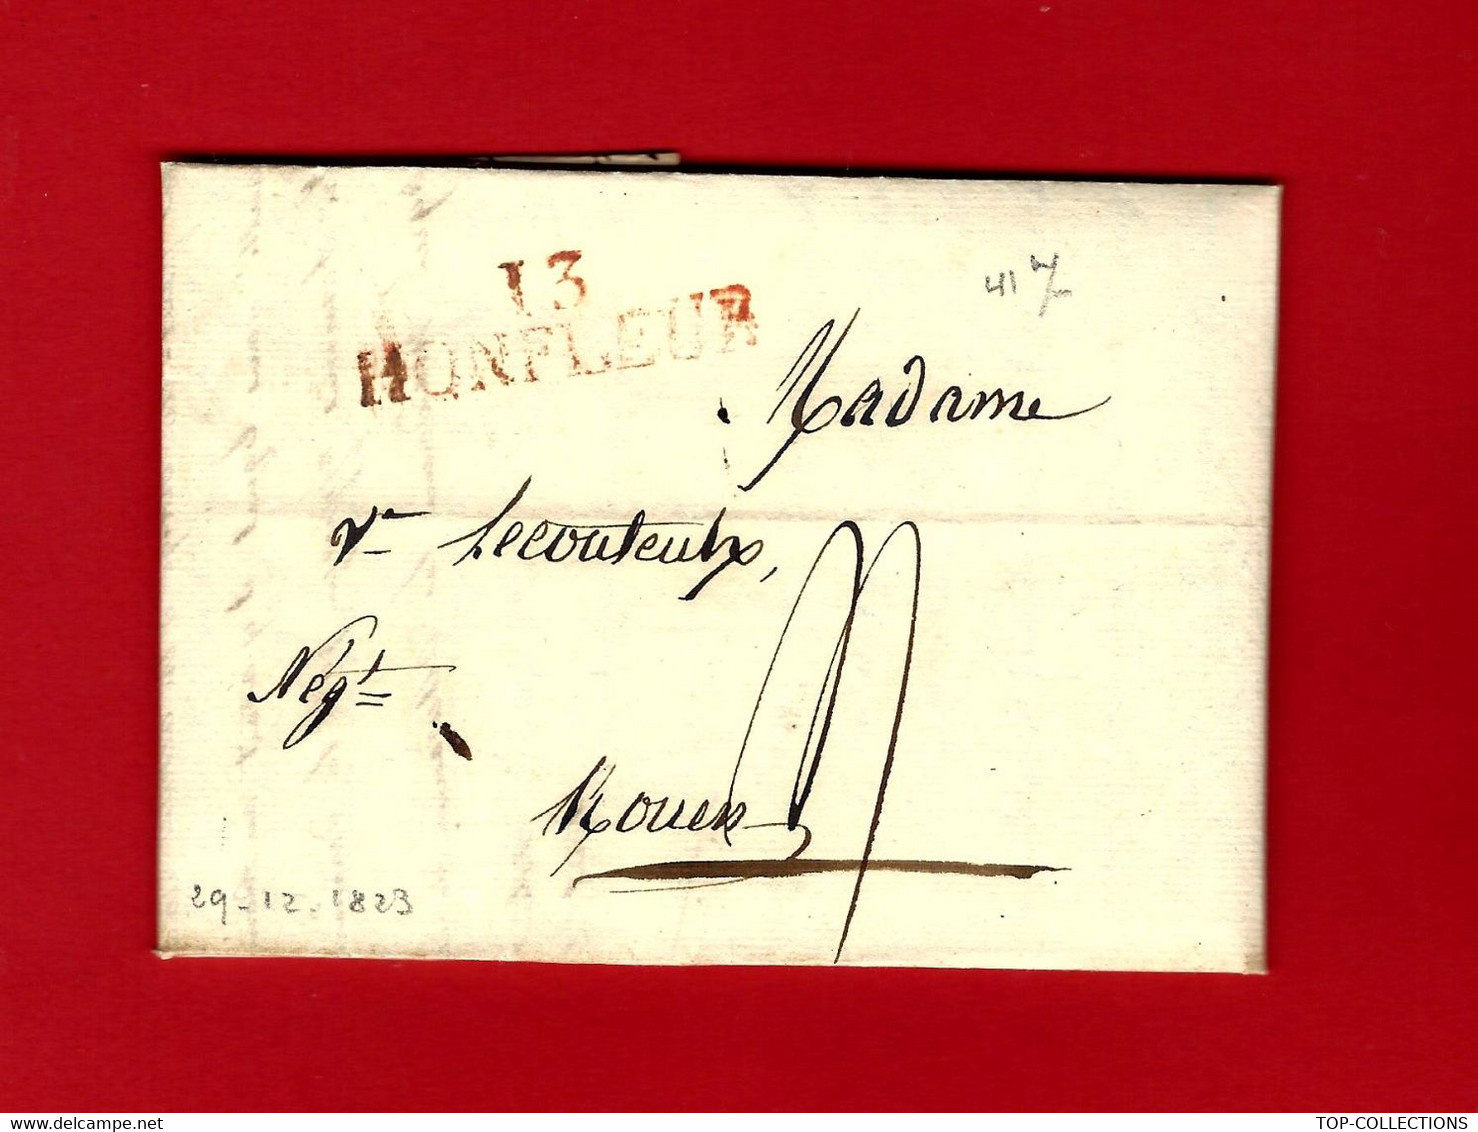 13
HONFLEUR
41
Madame
Ve Lecouteulx,
Negt
Rouen
29-12-1823
www.delcampe.net
TOP-COLLECTIONS